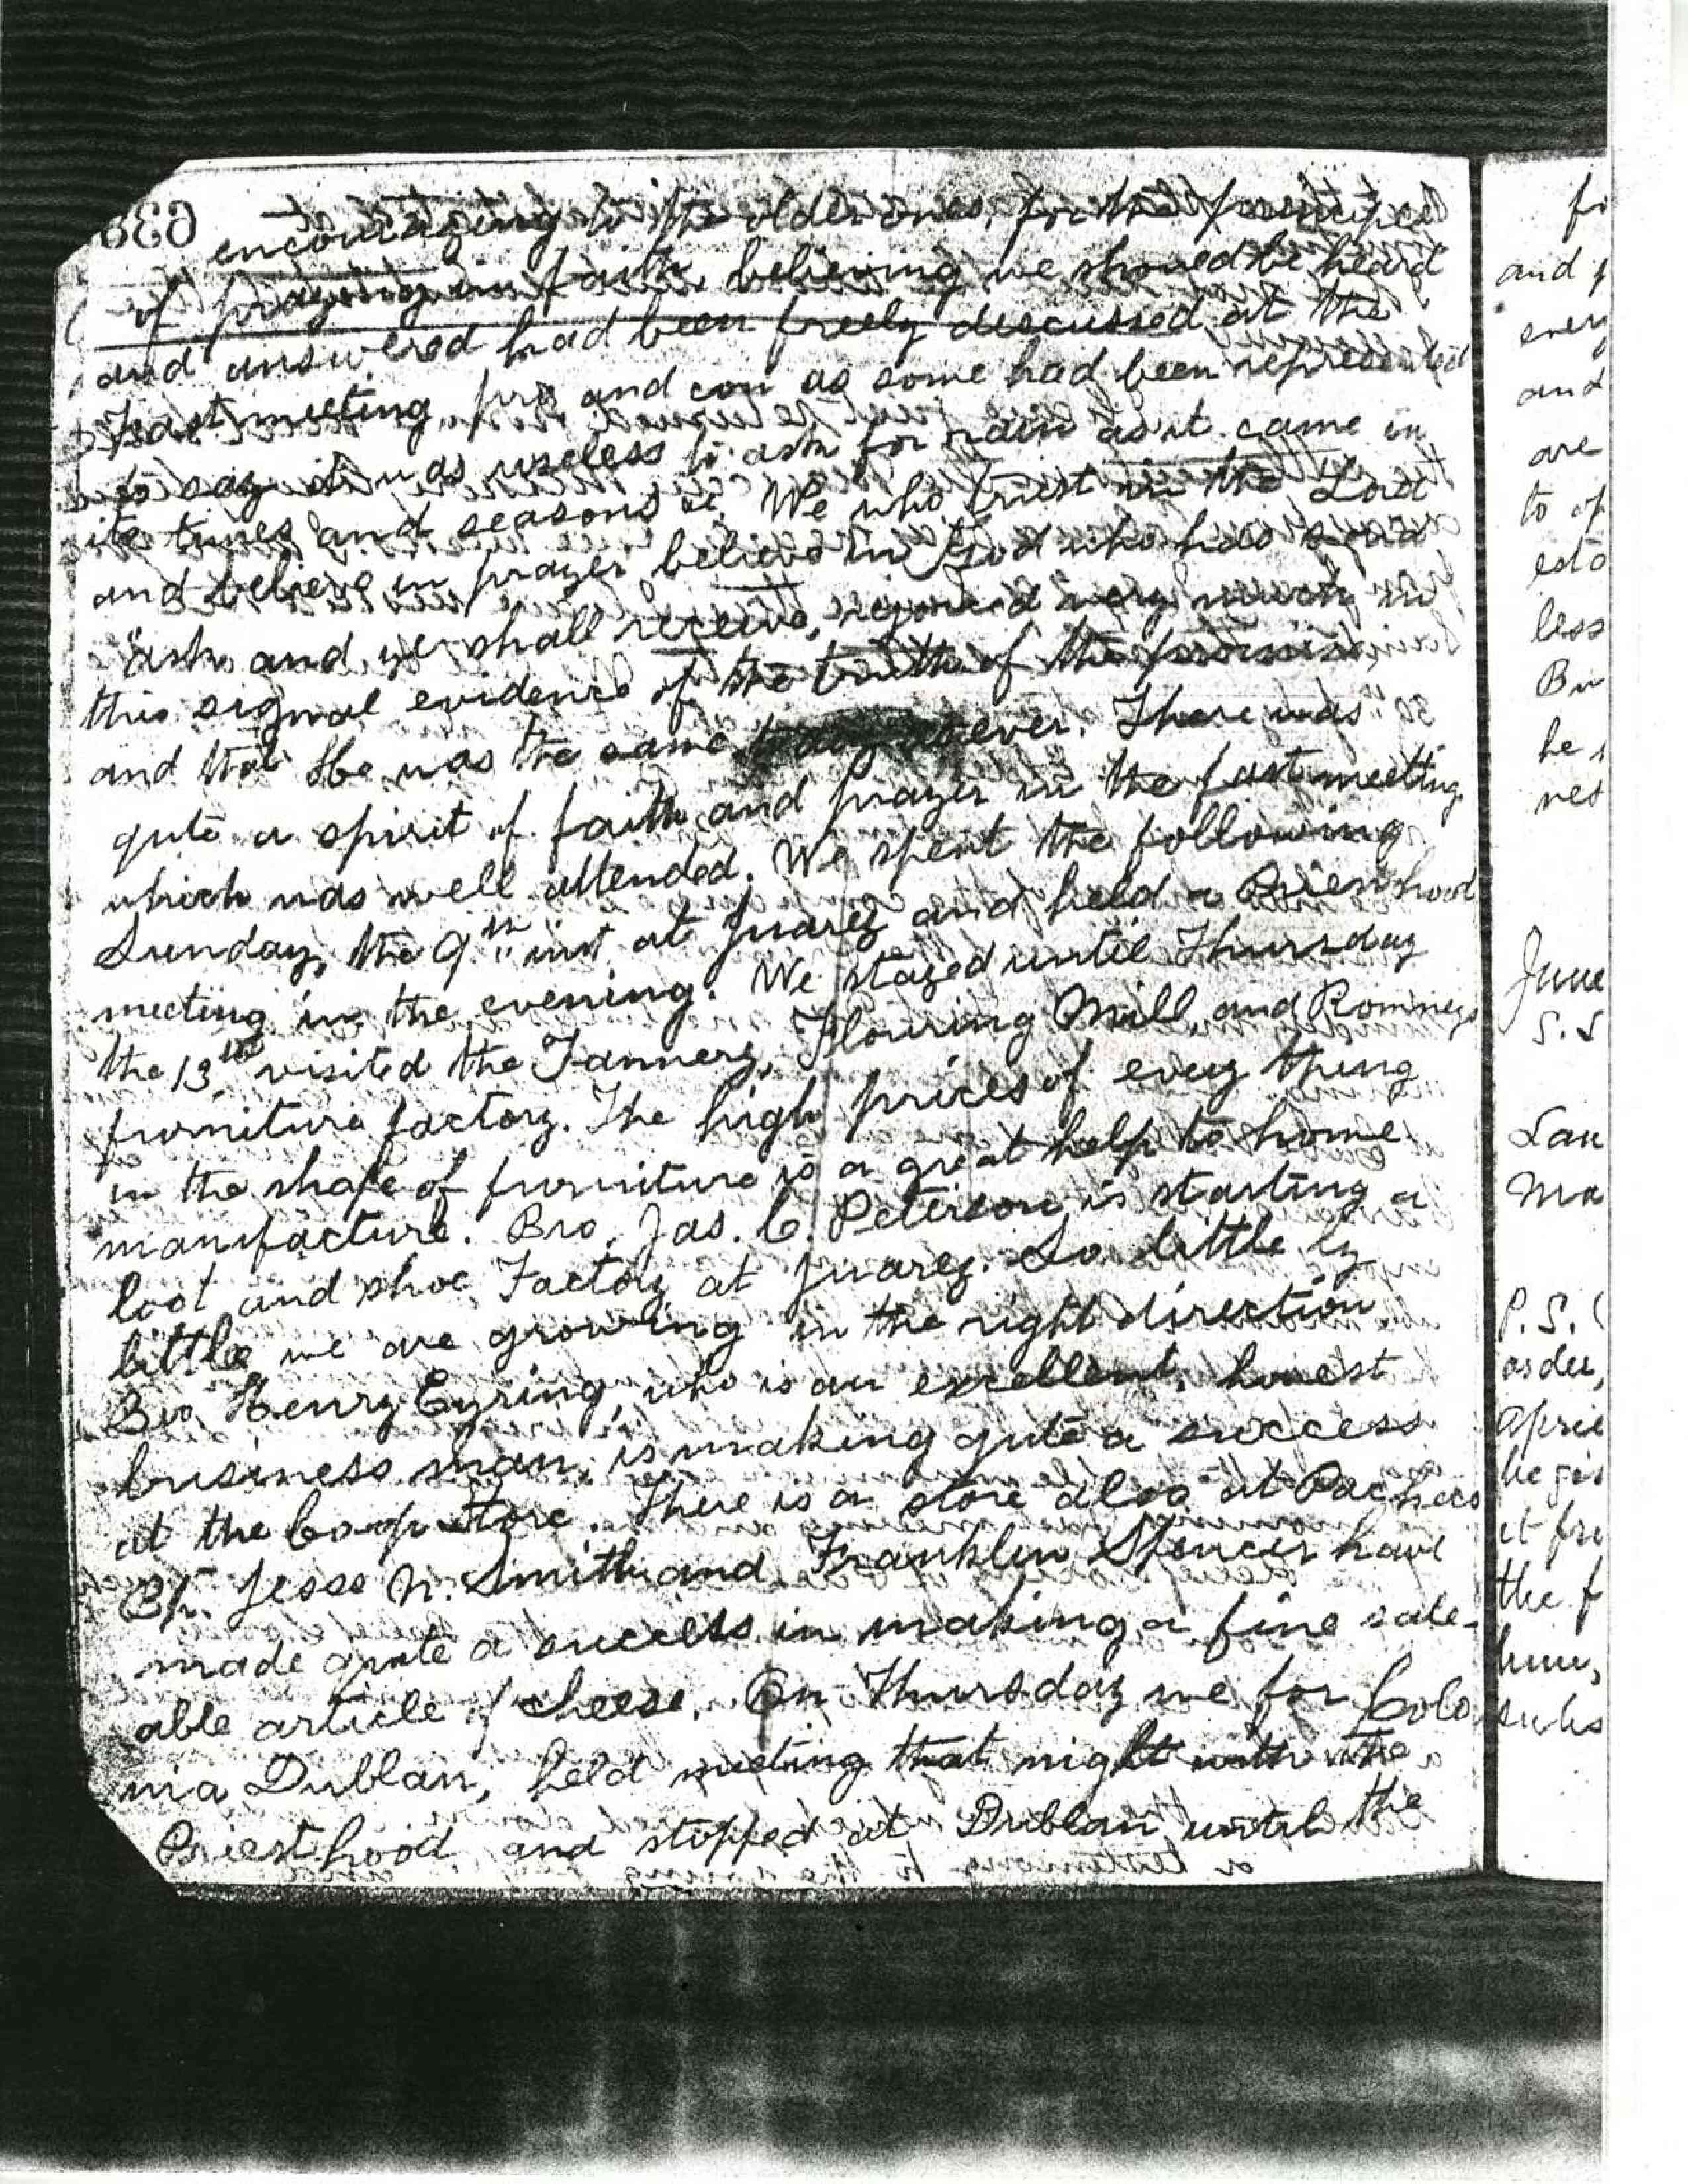 encouraging to the older ones, for the principle
of praying in faith, believing we should be heard
and answered had been freely discussed at the
Fast meeting, pro and con as some had been represented
to say it was useless to ask for rain as it came in
its times and seasons &c. We who trust in the Lord
and believe in prayer believe in God who has said
"ask and ye shall receive, rejoiced very much in
this signal evidence of the truth of the promise,
and that He was the same today as ever. There was
qute a spirit of faith and prayer in the fast meeting
which was well attended. We spent the following
Sunday, the 9th inst at Juarez and held a Priesthood
meeting in the evening. We stayed until Thursday
the 13th visited the Tannery, Flouring Mill, and Romneys
furniture factory. The high prices of every thing
in the shape of furniture is a great help to home
manufacture. Bro. Jas. C. Peterson is starting a
boot and shoe Factory at Juarez. So little by
little we are growing in the right direction
Bro. Henry Eyring, who is an excellent, honest
business man, is making qute a success
at the Co-op store. There is a store also at Pacheco
Br. Jesse N. Smith and Franklin Spencer have
made quite a success in making a fine sale-
able article of cheese. On Thursday we for Colo
nia Dublan, held meeting that night with the
Priesthood and stopped at Dublan until the
and
every
and
are
to
less
he
June
S.S
P.S.
it
the